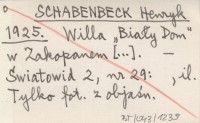 SCHABENBECK Henryk
1925. Willa „Biały Dom”
w Zakopanem [...]. —
Światowid 2, nr 29: , il.
Tylko fot. z objaśn.